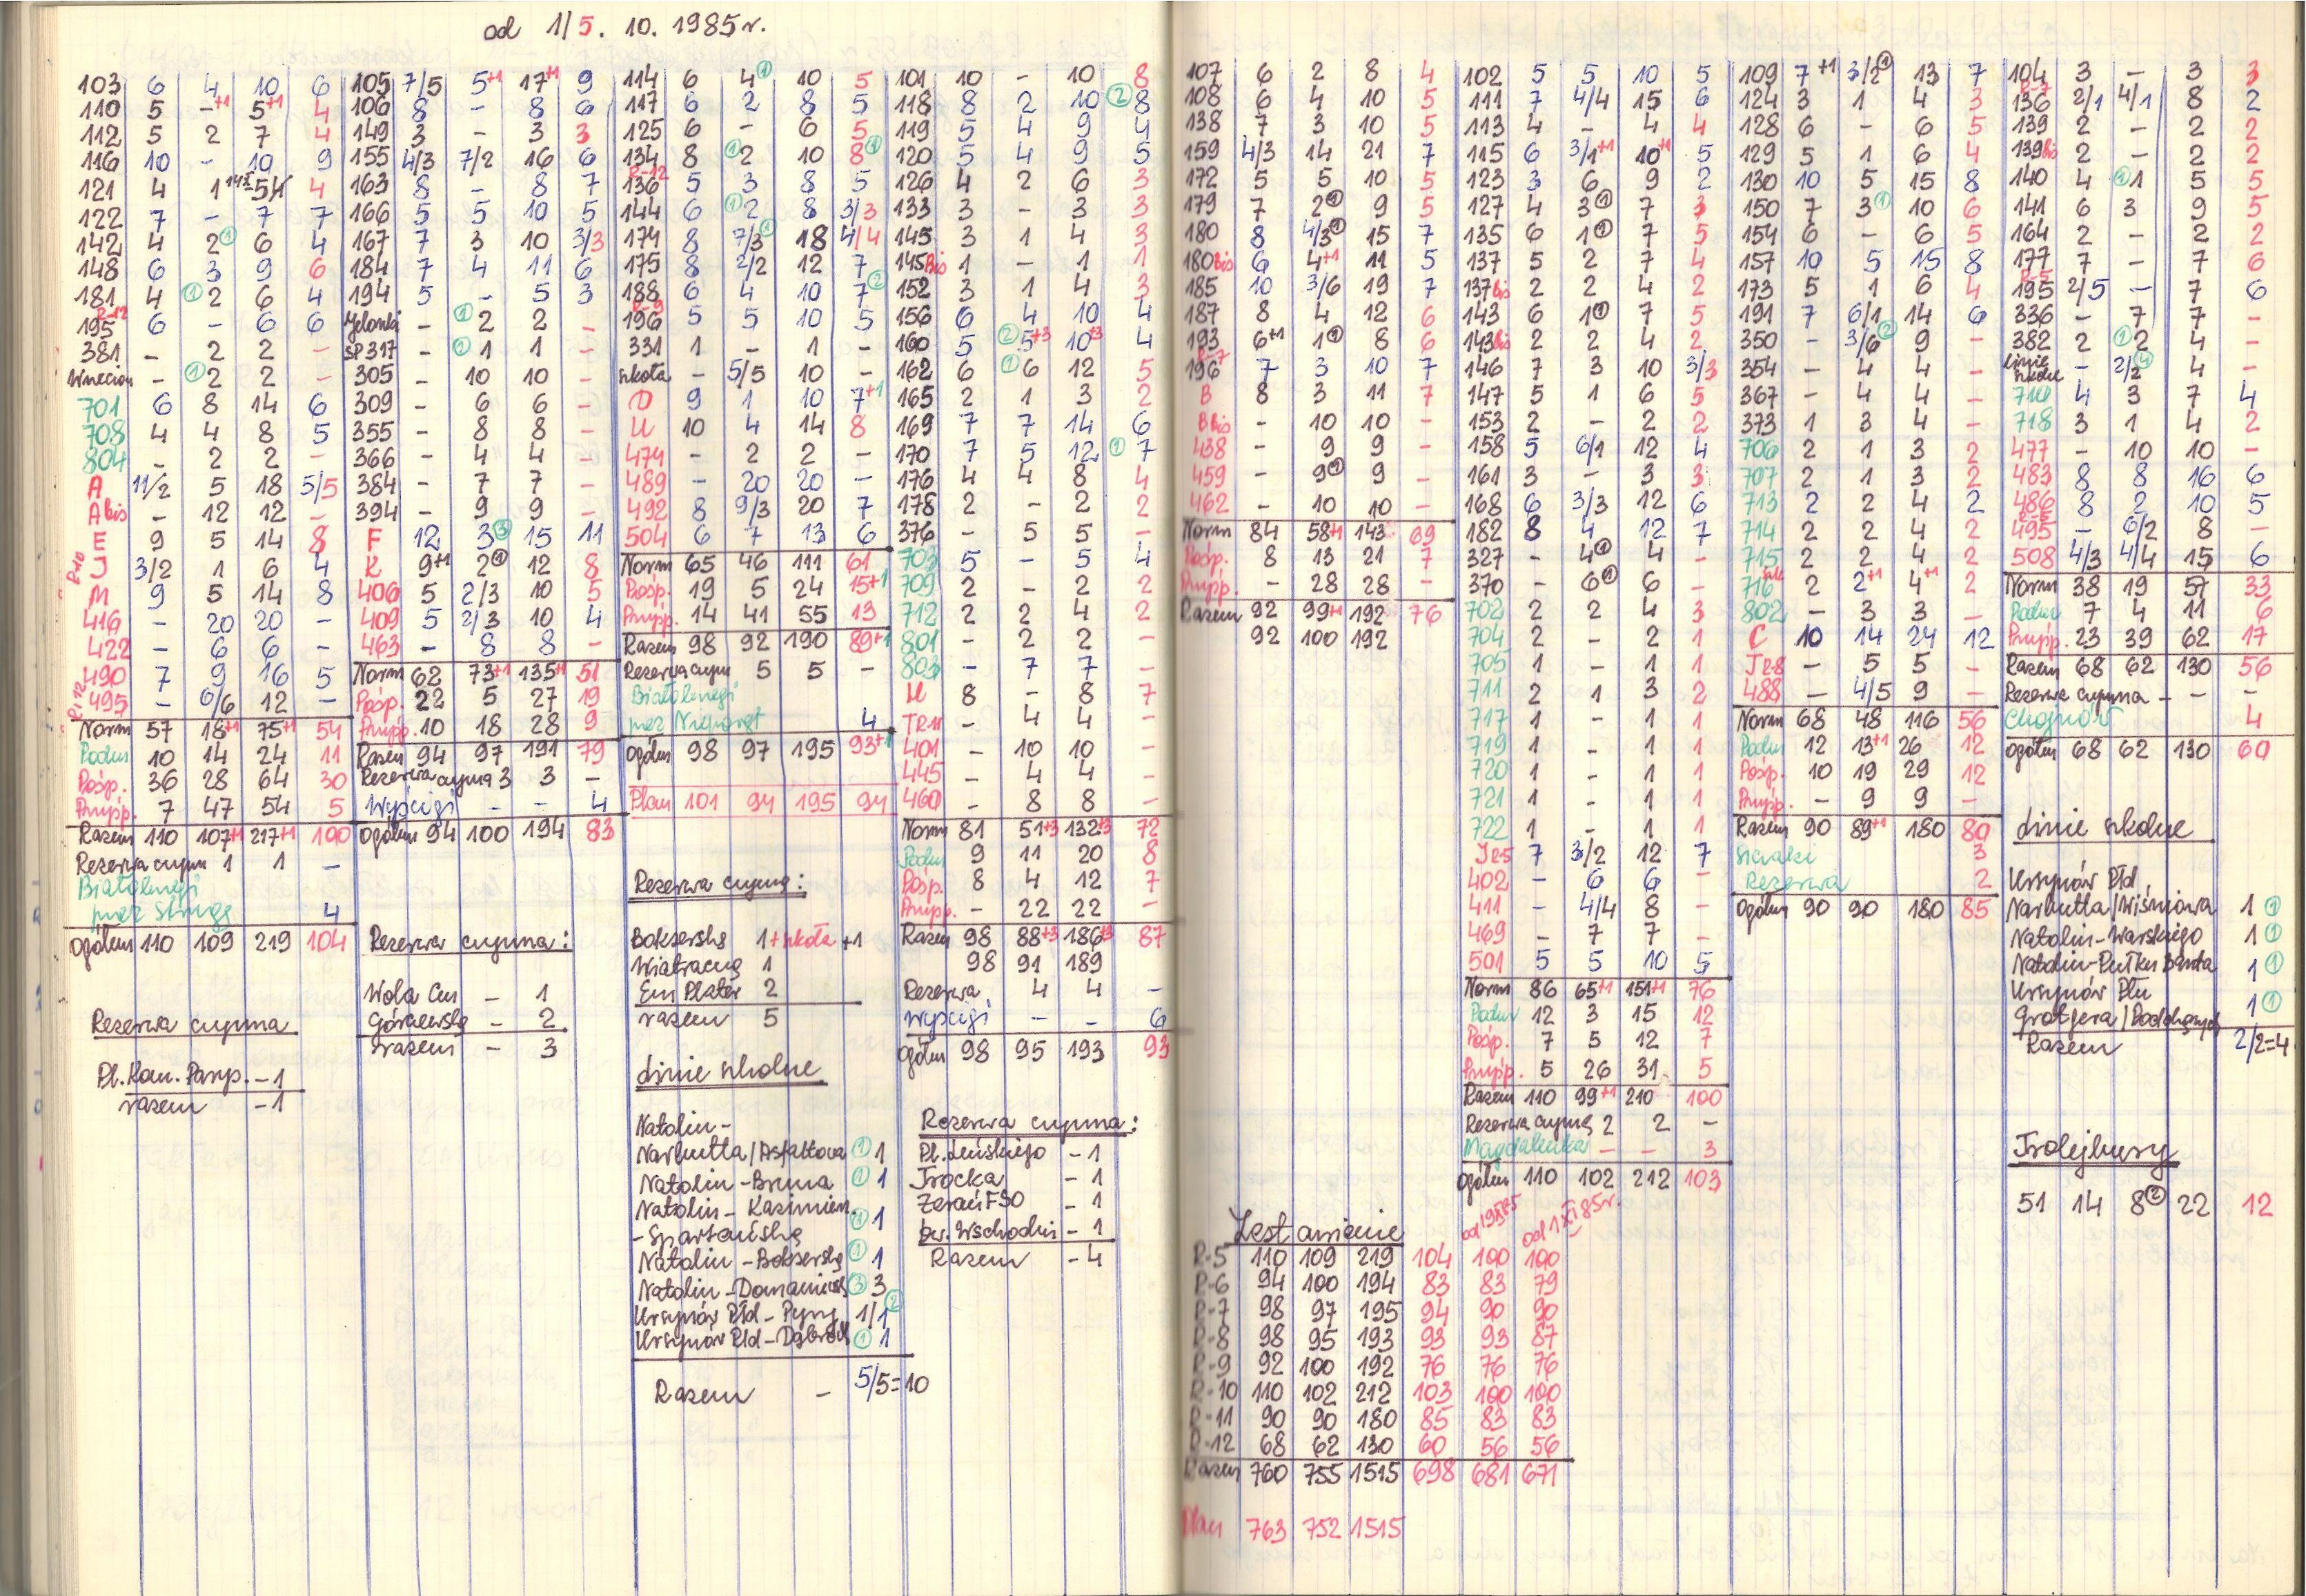 od 1/5. 10. 1985r.
103 6 4 10 6
110 5 -+1 5+1 4
112 5 2 7 4
116 10 - 10 9
121 4 1 5 4
122 7 - 7 7
142 4 2① 6 4
148 6 3 9 6
181 4 ①2 6 4
R-12
195 6 - 6 6
381 - 2 2 -
- ①2 2 -
701 6 8 14 6
708 4 4 8 5
804 - 2 2 -
A 11/2 5 18 5/5
A bis - 12 12 -
E 9 5 14 8
R10 J 3/2 1 6 4
M 9 5 14 8
416 - 20 20 -
422 - 6 6 -
490 7 9 16 5
R12 495 - 6/6 12 -
Norm 57 18+1 75+1 54
Podm 10 14 24 11
Pośp. 36 28 64 30
Przysp. 7 47 54 5
Razem 110 107+1 217+1 100
Rezerwa czynn 1 1 -
Białołenęj
przez Strugę 4
Ogółem 110 109 219 104
Rezerwa czynna
Pl. Kom. Parysk. - 1
razem - 1
105 7/5 5+1 17+1 9
106 8 - 8 6
149 3 - 3 3
155 4/3 7/2 16 6
163 8 - 8 7
166 5 5 10 5
167 7 3 10 3/3
184 7 4 11 6
194 5 - 5 3
Jelonki - ①2 2 -
SP 317 - ①1 1 -
305 - 10 10 -
309 - 6 6 -
355 - 8 8 -
366 - 4 4 -
384 - 7 7 -
394 - 9 9 -
F 12 3③ 15 11
K 9+1 2① 12 8
406 5 2/3 10 5
409 5 2/3 10 4
463 - 8 8 -
Norm 62 73+1 135+1 51
Pośp. 22 5 27 19
Przysp. 10 18 28 9
Razem 94 97 191 79
Rezerwa czynna 3 3 -
Wyścigi - - 4
Ogółem 94 100 194 83
Rezerwa czynna:
Wola Cm - 1
Górczewska - 2
razem - 3
114 6 4① 10 5
117 6 2 8 5
125 6 - 6 5
134 8 ①2 10 8①
R-12
136 5 3 8 5
144 6 ①2 8 3/3
174 8 7/3① 18 4/4
175 8 2/2 12 7
188 6 4 10 7②
R-9
196 5 5 10 5
331 1 - 1 -
szkoła - 5/5 10 -
D 9 1 10 7+1
U 10 4 14 8
474 - 2 2 -
489 - 20 20 -
492 8 9/3 20 7
504 6 7 13 6
Norm 65 46 111 61
Pośp. 19 5 24 15+1
Przysp. 14 41 55 13
Razem 98 92 190 89+1
Rezerwa czynn 5 5 -
Białołenęj
przez Nieporęt 4
Ogółem 98 97 195 93+1
Plan 101 94 195 94
Rezerwa czynna:
Bokserska 1+szkoła+1
Wiatraczna 1
Em Plater 2
razem 5
Linie szkolne
Natolin-
Narbutta/Asfaltowa ① 1
Natolin-Bruna ① 1
Natolin-Kazimierz.
-Spartańska ① 1
Natolin-Bokserska ① 1
Natolin-Domaniews ③ 3
Ursynów Płd-Pyry 1/1②
Ursynów Płd-Dąbrówk ① 1
Razem - 5/5=10
101 10 - 10 8
118 8 2 10 ②8
119 5 4 9 4
120 5 4 9 5
126 4 2 6 3
133 3 - 3 3
145 3 1 4 3
145bis 1 - 1 1
152 3 1 4 3
156 6 4 10 4
160 5 ②5+3 10+3 4
162 6 ①6 12 5
165 2 1 3 2
169 7 7 14 6
170 7 5 12 ①7
176 4 4 8 4
178 2 - 2 2
376 - 5 5 -
703 5 - 5 4
709 2 - 2 2
712 2 2 4 2
801 - 2 2 -
803 - 7 7 -
H 8 - 8 7
TR11 - 4 4 -
401 - 10 10 -
445 - 4 4 -
460 - 8 8 -
Norm 81 51+3 132+3 72
Podm 9 11 20 8
Pośp. 8 4 12 7
Przysp. - 22 22 -
Razem 98 88+3 186+3 87
98 91 189
Rezerwa 4 4 -
Wyścigi - - 6
Ogółem 98 95 193 93
Rezerwa czynna:
Pl. Leńskiego - 1
Trocka - 1
Żerań FSO - 1
Dw. Wschodni - 1
Razem - 4
107 6 2 8 4
108 6 4 10 5
138 7 3 10 5
159 4/3 14 21 7
172 5 5 10 5
179 7 2① 9 5
180 8 4/3① 15 7
180bis 6 4+1 11 5
185 10 3/6 19 7
187 8 4 12 6
193 6+1 1① 8 6
R-7
196 7 3 10 7
B 8 3 11 7
B bis - 10 10 -
438 - 9 9 -
459 - 9① 9 -
462 - 10 10 -
Norm 84 58+1 143 69
Pośp. 8 13 21 7
Przysp. - 28 28 -
Razem 92 99+1 192 76
92 100 192
Zestawienie
od 1985 od 1 XI 85r.
R-5 110 109 219 104 100 100
R-6 94 100 194 83 83 79
R-7 98 97 195 94 90 90
R-8 98 95 193 93 93 87
R-9 92 100 192 76 76 76
R-10 110 102 212 103 100 100
R-11 90 90 180 85 83 83
R-12 68 62 130 60 56 56
Razem 760 755 1515 698 681 671
Plan 763 752 1515
102 5 5 10 5
111 7 4/4 15 6
113 4 - 4 4
115 6 3/1+1 10+1 5
123 3 6 9 2
127 4 3① 7 3
135 6 1① 7 5
137 5 2 7 4
137bis 2 2 4 2
143 6 1① 7 5
143bis 2 2 4 2
146 7 3 10 3/3
147 5 1 6 5
153 2 - 2 2
158 5 6/1 12 4
161 3 - 3 3
168 6 3/3 12 6
182 8 4 12 7
327 - 4① 4 -
370 - 6① 6 -
702 2 2 4 3
704 2 - 2 1
705 1 - 1 1
711 2 1 3 2
717 1 - 1 1
719 1 - 1 1
720 1 - 1 1
721 1 - 1 1
722 1 - 1 1
JR5 7 3/2 12 7
402 - 6 6 -
411 - 4/4 8 -
469 - 7 7 -
501 5 5 10 5
Norm 86 65+1 151+1 76
Podm 12 3 15 12
Pośp. 7 5 12 7
Przysp. 5 26 31 5
Razem 110 99+1 210 100
Rezerwa czynna 2 2 -
Magdalenka - - 3
Ogółem 110 102 212 103
109 7+1 3/2① 13 7
124 3 1 4 3
128 6 - 6 5
129 5 1 6 4
130 10 5 15 8
150 7 3① 10 6
154 6 - 6 5
157 10 5 15 8
173 5 1 6 4
191 7 6/1 14 6
350 - 3/6② 9 -
354 - 4 4 -
367 - 4 4 -
373 1 3 4 -
706 2 1 3 2
707 2 1 3 2
713 2 2 4 2
714 2 2 4 2
715 2 2 4 2
716 2 2+1 4+1 2
802 - 3 3 -
C 10 14 24 12
JR8 - 5 5 -
488 - 4/5 9 -
Norm 68 48 116 56
Podm 12 13+1 26 12
Pośp. 10 19 29 12
Przysp. - 9 9 -
Razem 90 89+1 180 80
Sieraki 3
Rezerwa 2
Ogółem 90 90 180 85
104 3 - 3 3
R-7
136 2/1 4/1 8 2
139 2 - 2 2
139bis 2 - 2 2
140 4 ①1 5 5
141 6 3 9 5
164 2 - 2 2
177 7 - 7 6
R-5
195 2/5 - 7 6
336 - 7 7 -
382 2 ①2 4 -
Linie szkolne - 2/2④ 4 -
710 4 3 7 4
718 3 1 4 2
477 - 10 10 -
483 8 8 16 6
486 8 2 10 5
R-5
495 - 6/2 8 -
508 4/3 4/4 15 6
Norm 38 19 57 33
Podm 7 4 11 6
Przysp. 23 39 62 17
Razem 68 62 130 56
Rezerwa czynna - - -
Chojnów 4
Ogółem 68 62 130 60
Linie szkolne
Ursynów Płd
Narbutta/Wiśniowa 1 ①
Natolin-Warskiego 1 ①
Natolin-Pułku Baszta 1 ①
Ursynów Płn
Grotgera/Podchorążych 1 ①
Razem 2/2=4
Trolejbusy
51 14 8② 22 12